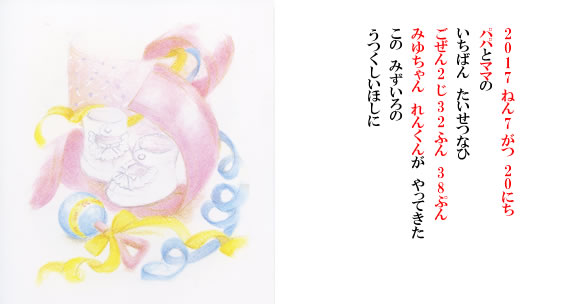 2017ねん7がつ 20にち
パパとママの
いちばん たいせつなひ
ごぜん2じ32ふん 38ぷん
みゆちゃん れんくんが やってきた
この みずいろの
うつくしいほしに